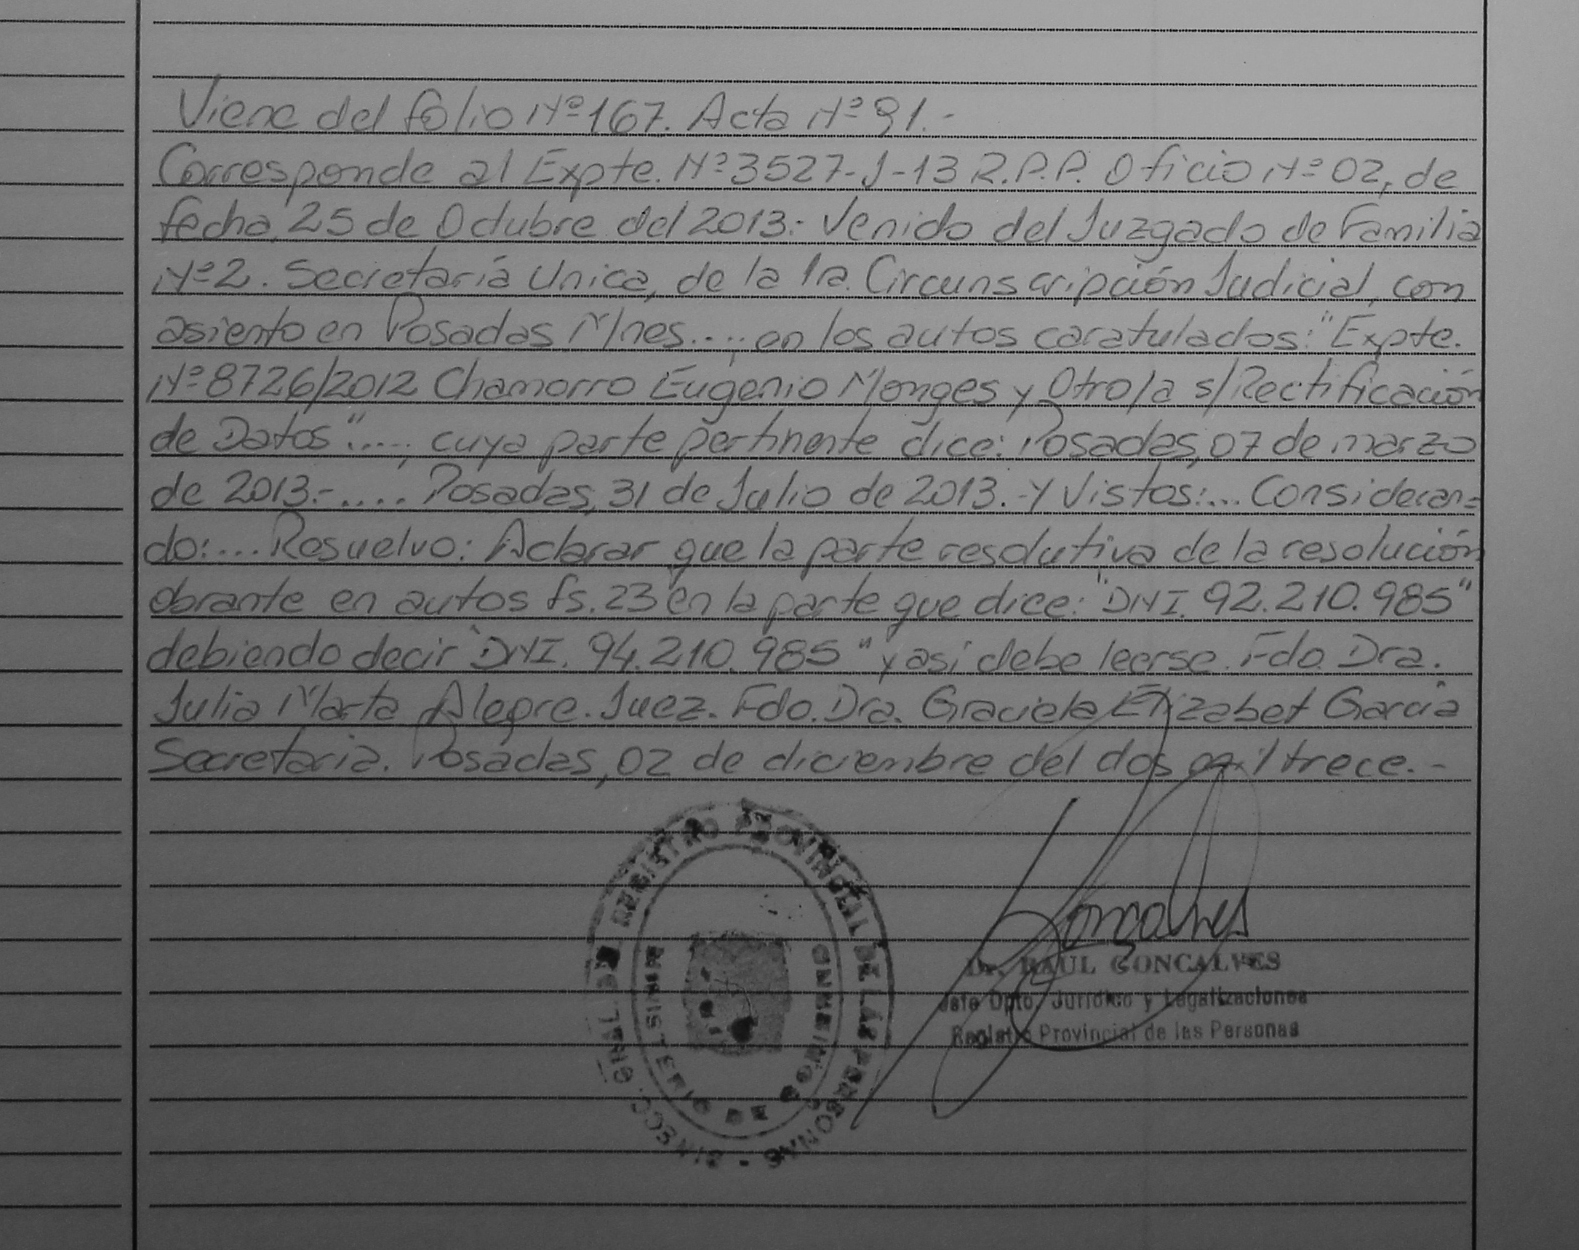 Viene del folio Nº 167. Acta Nº 91.-
Corresponde al Expte. Nº 3527-J-13 R.P.P. Oficio Nº 02, de
fecha 25 de Octubre del 2013.- Venido del Juzgado de Familia
Nº 2. Secretaría Unica, de la 1ra. Circunscripción Judicial, con
asiento en Posadas Mnes...., en los autos caratulados: "Expte.
Nº 8726/2012 Chamorro Eugenio Monges y Otro/a s/Rectificación
de Datos"...., cuya parte pertinente dice: Posadas, 07 de marzo
de 2013.-.... Posadas, 31 de Julio de 2013.- Y Vistos:... Consideran-
do:... Resuelvo: Aclarar que la parte resolutiva de la resolución
obrante en autos fs. 23 en la parte que dice: "DNI. 92.210.985"
debiendo decir "DNI. 94.210.985" y así debe leerse. Fdo. Dra.
Julia Marta Alegre. Juez. Fdo. Dra. Graciela Elizabet García
Secretaria. Posadas, 02 de diciembre del dos mil trece.-
REGISTRO PROVINCIAL DE LAS PERSONAS
MINISTERIO DE GOBIERNO
Gonçalves
Dr. RAUL GONCALVES
Jefe Dpto. Jurídico y Legalizaciones
Registro Provincial de las Personas